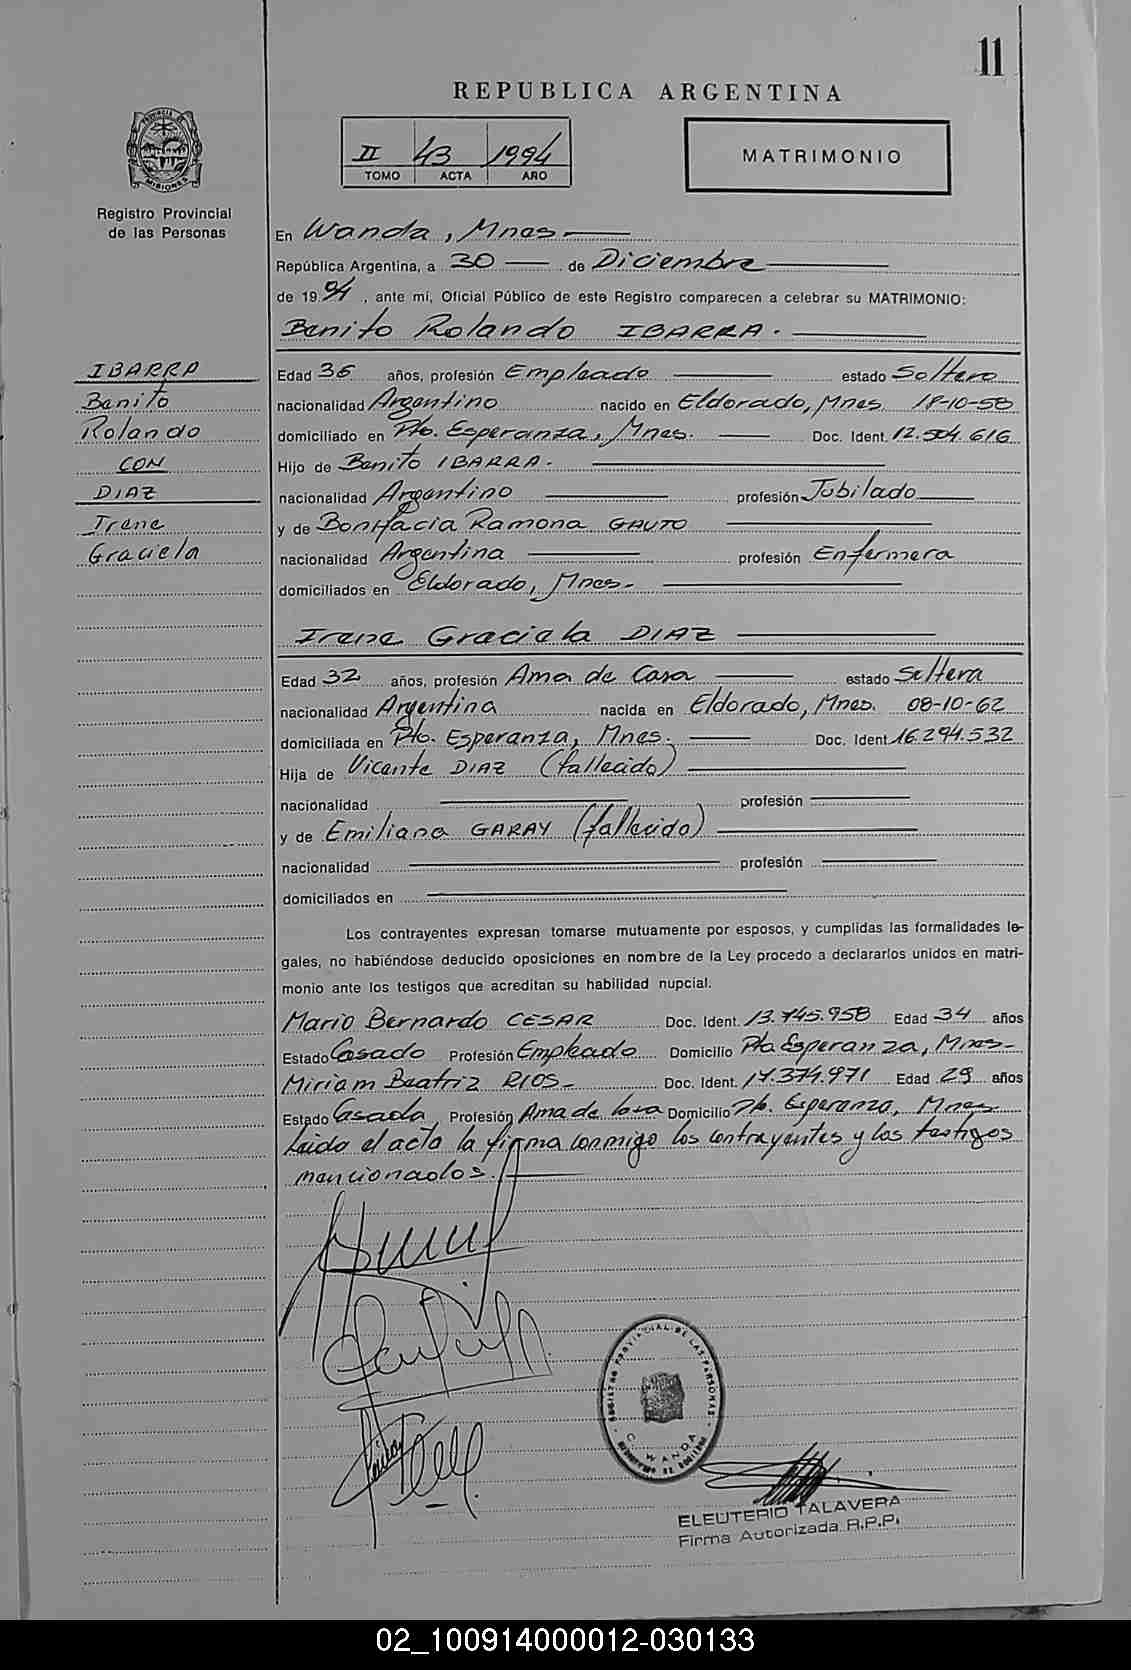 11
REPUBLICA ARGENTINA
II 43 1994
TOMO ACTA AÑO
MATRIMONIO
PROVINCIA DE MISIONES
Registro Provincial
de las Personas
En Wanda, Mnes
República Argentina, a 30 de Diciembre
de 1994, ante mi, Oficial Público de este Registro comparecen a celebrar su MATRIMONIO:
Benito Rolando IBARRA.
IBARRA
Benito
Rolando
CON
DIAZ
Irene
Graciela
Edad 36 años, profesión Empleado estado Soltero
nacionalidad Argentino nacido en Eldorado, Mnes. 18-10-58
domiciliado en Pto. Esperanza, Mnes. Doc. Ident. 12.504.616
Hijo de Benito IBARRA.
nacionalidad Argentino profesión Jubilado
y de Bonifacia Ramona GAUTO
nacionalidad Argentina profesión Enfermera
domiciliados en Eldorado, Mnes.
Irene Graciela DIAZ
Edad 32 años, profesión Ama de Casa estado Soltera
nacionalidad Argentina nacida en Eldorado, Mnes. 08-10-62
domiciliada en Pto. Esperanza, Mnes. Doc. Ident. 16.294.532
Hija de Vicente DIAZ (fallecido)
nacionalidad profesión
y de Emiliana GARAY (fallecido)
nacionalidad profesión
domiciliados en
Los contrayentes expresan tomarse mutuamente por esposos, y cumplidas las formalidades le-
gales, no habiéndose deducido oposiciones en nombre de la Ley procedo a declararlos unidos en matri-
monio ante los testigos que acreditan su habilidad nupcial.
Mario Bernardo CESAR Doc. Ident. 13.745.958 Edad 34 años
Estado Casado Profesión Empleado Domicilio Pto Esperanza, Mnes-
Miriam Beatriz RIOS- Doc. Ident. 17.374.971 Edad 29 años
Estado Casada Profesión Ama de Casa Domicilio Pto. Esperanza, Mnes
Leido el acta la firma conmigo los contrayentes y los testigos
mencionados.
REGISTRO PROVINCIAL DE LAS PERSONAS
WANDA
ELEUTERIO TALAVERA
Firma Autorizada R.P.P.
02_100914000012-030133